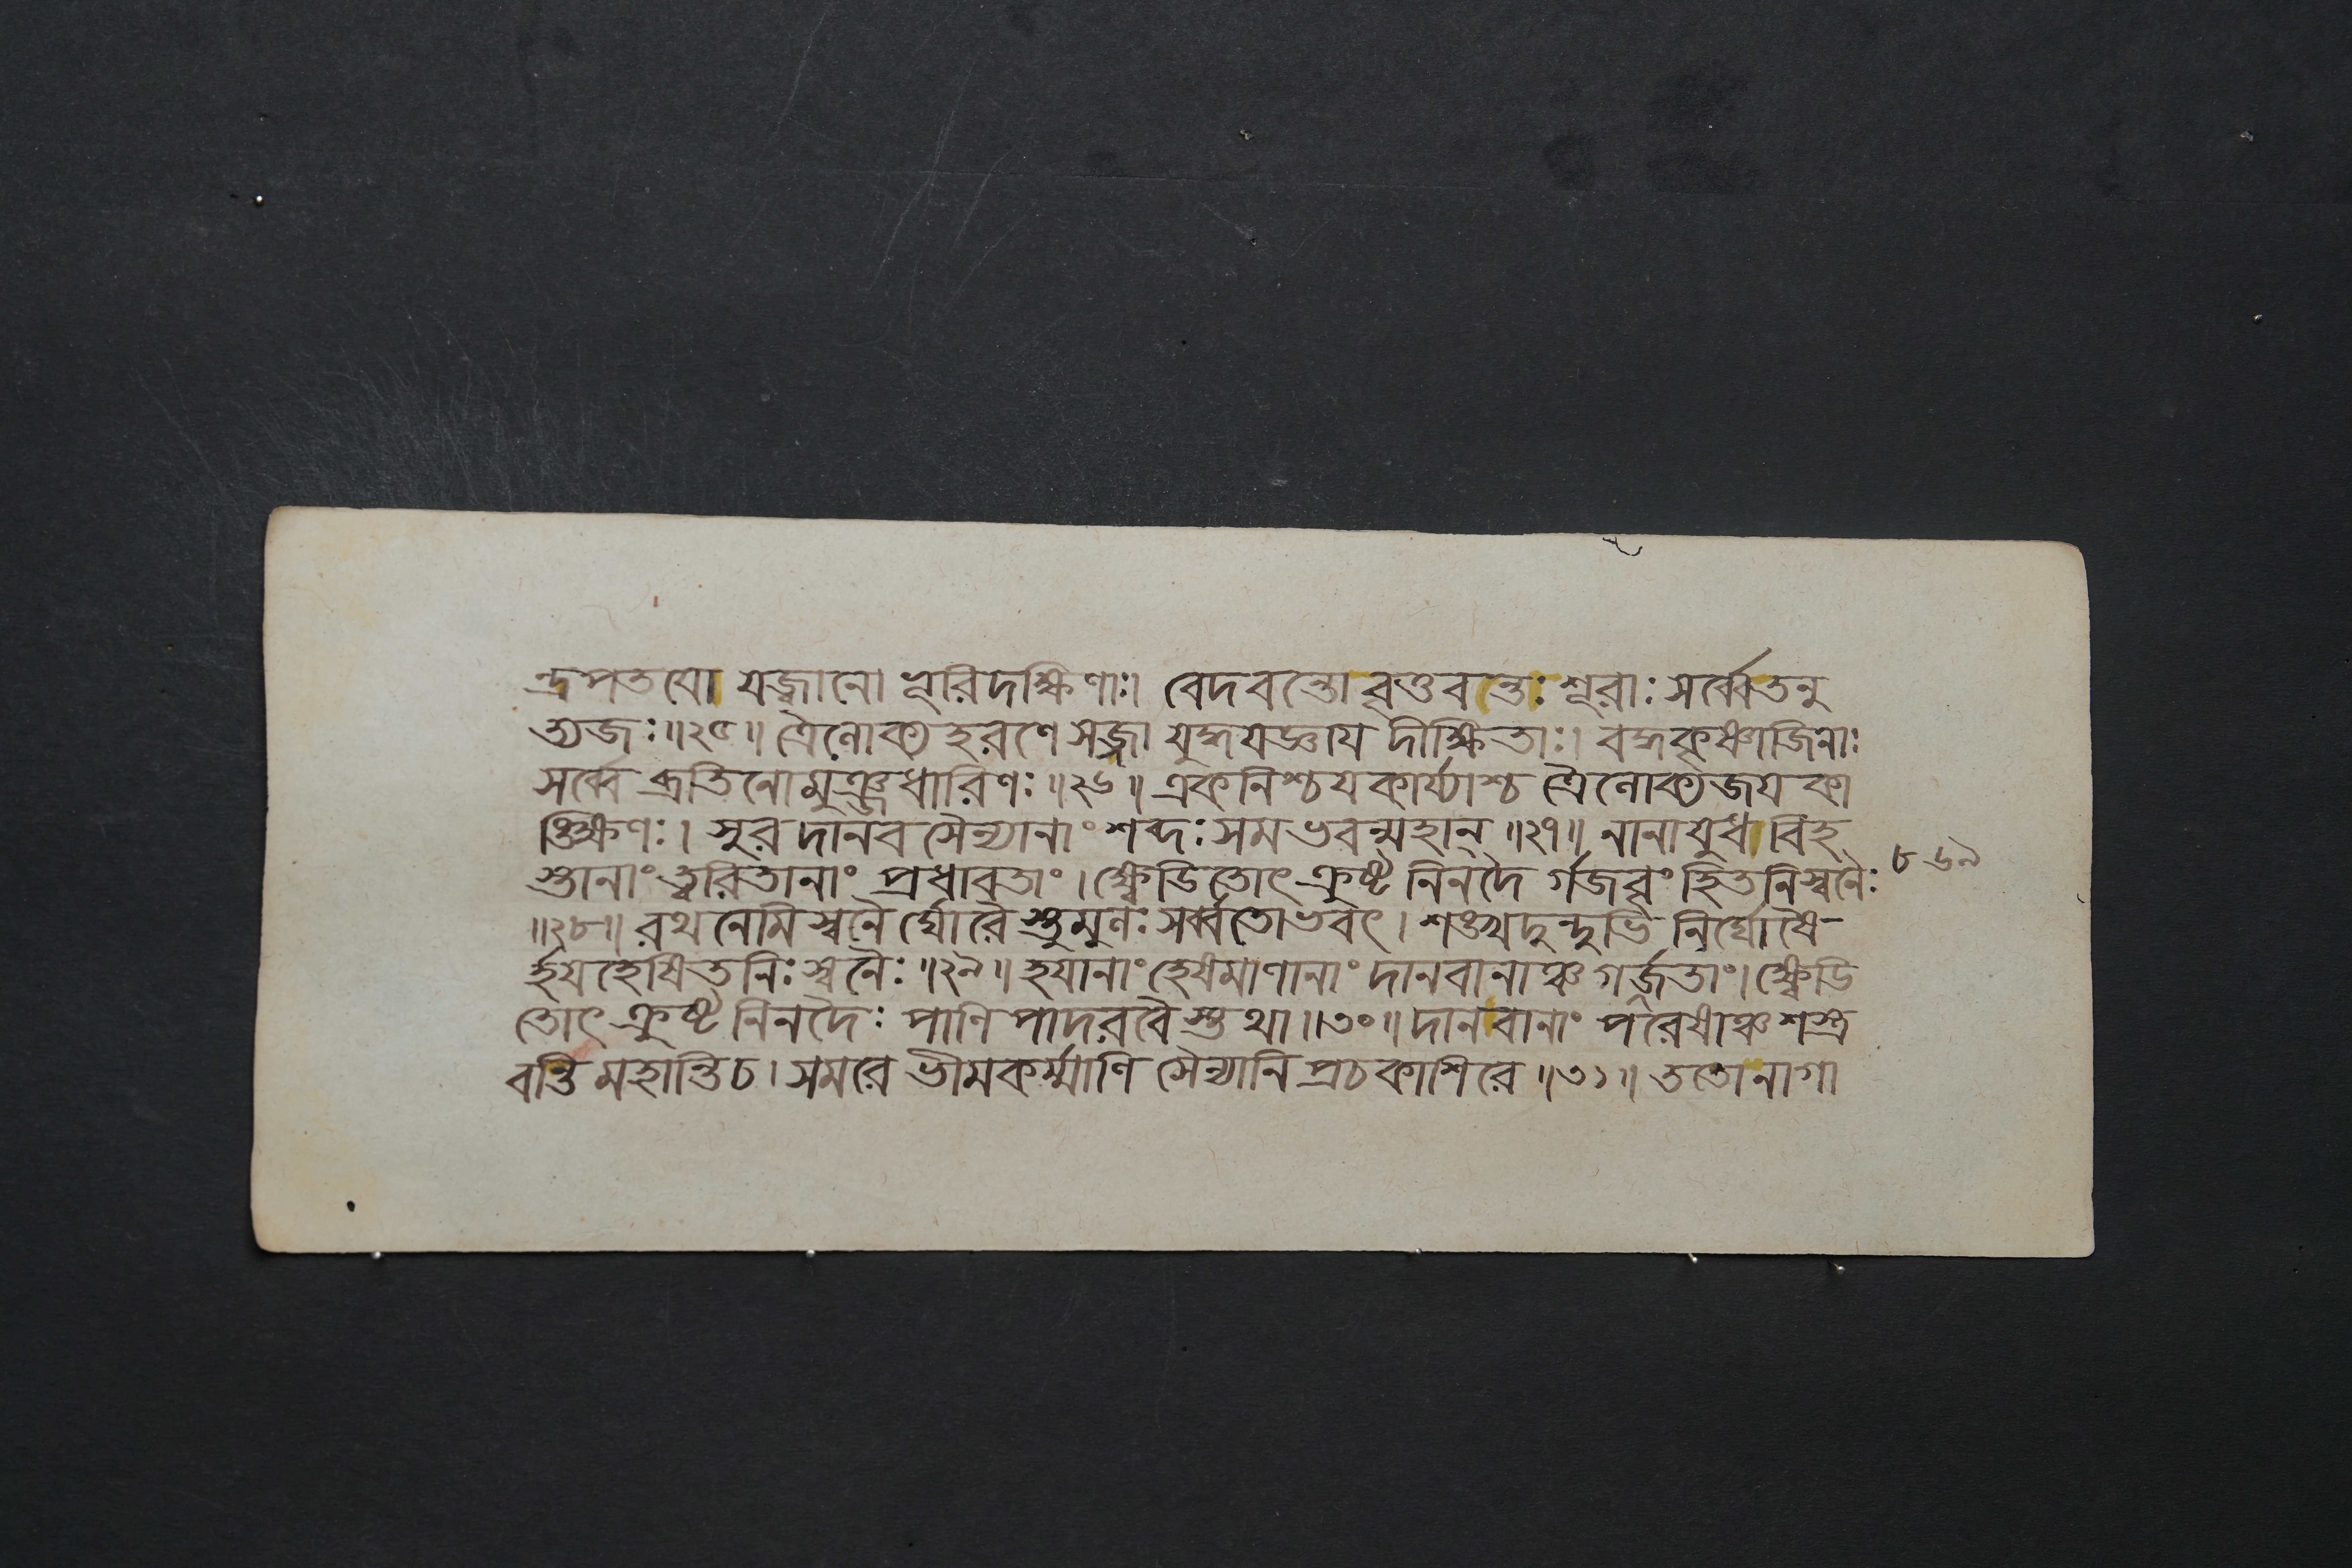 ন্দ্রপতযো যজ্বানো ভূরিদক্ষিণাঃ। বেদবন্তো বৃতবন্তঃ শূরাঃ সর্ব্বেতনু
ত্যজঃ॥২৫॥ ত্রৈলোক্য হরণে সজ্জা যুদ্ধযজ্ঞায দীক্ষিতাঃ। বদ্ধকৃষ্ণাজিনাঃ
সর্ব্বে ব্রতিনো মুঞ্জধারিণঃ॥২৬॥ একনিশ্চযকার্য্যাশ্চ ত্রৈলোক্যজয কা
ঙ্ক্ষিণঃ। সুর দানব সৈন্যানাং শব্দঃ সমভবন্মহান্॥২৭॥ নানাযুধ বিহ
স্তানাং ত্বরিতানাং প্রধাবতাং। ক্ষ্বেডিতোৎক্রুষ্ট নিনদৈ র্গজবৃংহিতনিস্বনৈঃ
॥২৮॥ রথনেমিস্বনৈ র্ঘোরৈ স্তুমুলঃ সর্ব্বতোভবৎ। শঙ্খদুন্দুভি নির্ঘোষৈ-
র্হযহেষিতনিঃস্বনৈঃ॥২৯॥ হযানাং হেষমাণানাং দানবানাঞ্চ গর্জ্জতাং। ক্ষ্বেডি
তোৎক্রুষ্ট নিনদৈঃ পাণি পাদরবৈ স্তথা॥৩০॥ দানবানাং পরেষাঞ্চ শস্ত্র
বন্তি মহান্তি চ। সমরে ভীমকর্ম্মাণি সৈন্যানি প্রচকাশিরে॥৩১॥ ততোনাগা
৮৬৯